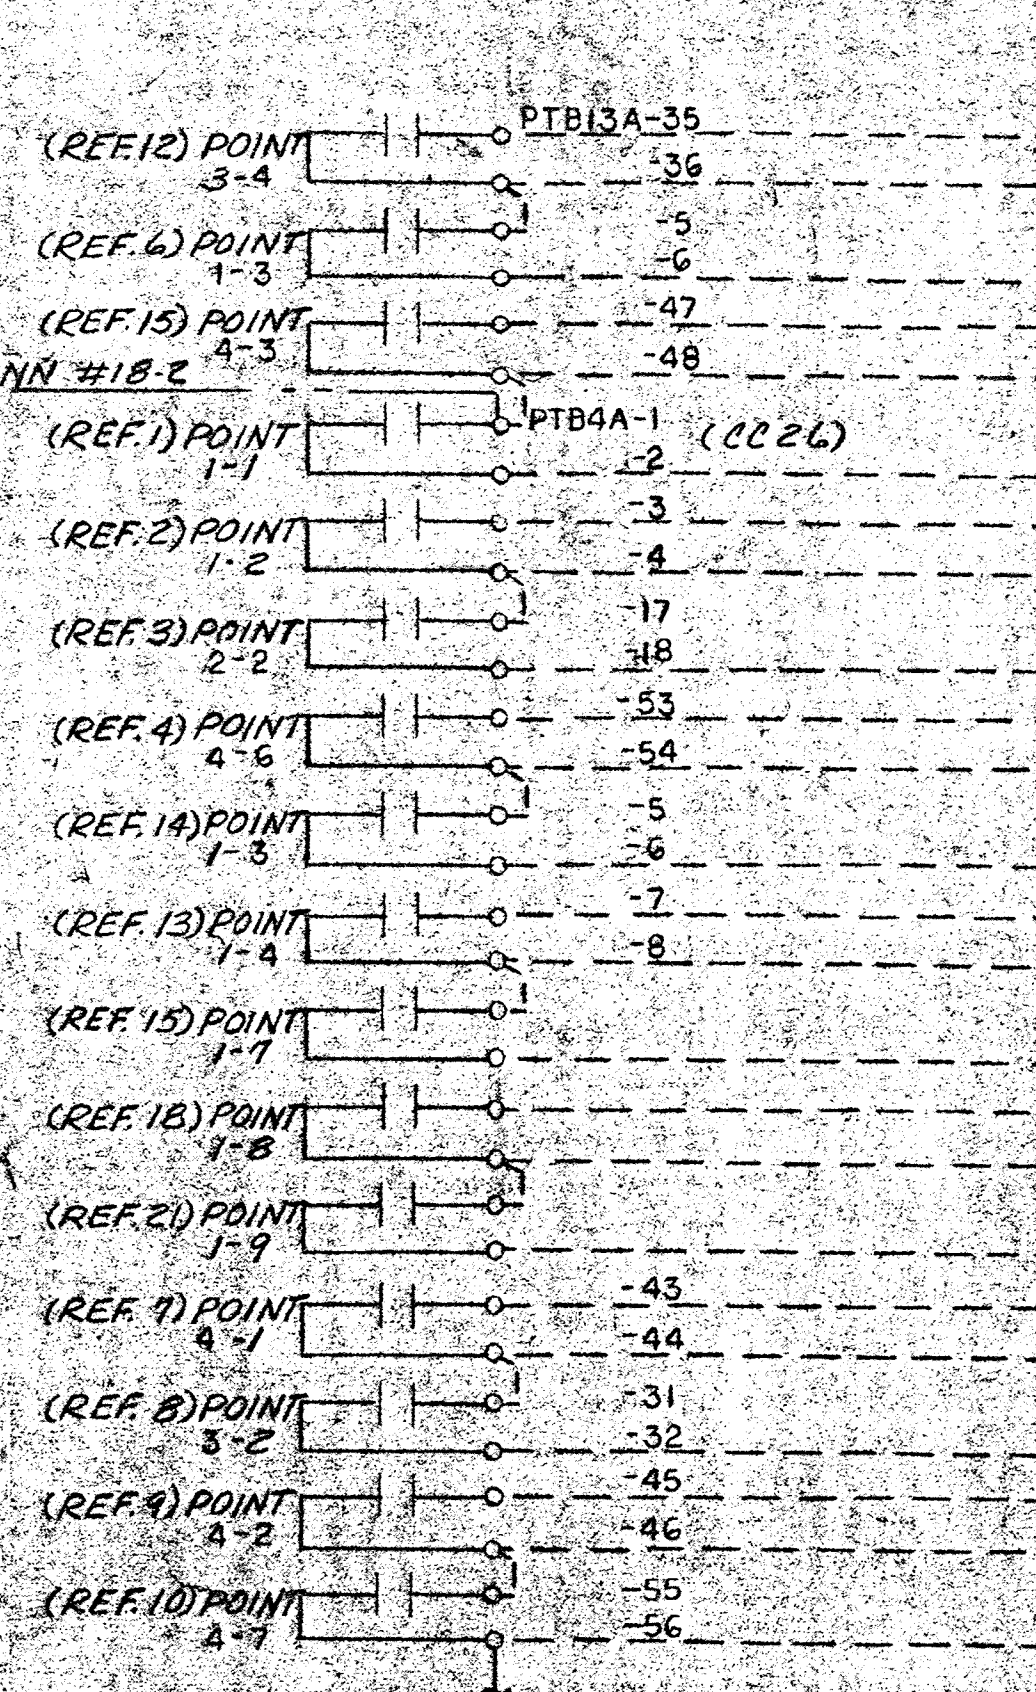 PTB13A-35
(REF. 12) POINT
3-4
-36
(REF. 6) POINT
1-3
-5
-6
(REF. 15) POINT
4-3
-47
-48
NN #18-2
(REF. 1) POINT
1-1
PTB4A-1
(CC26)
-2
(REF. 2) POINT
1-2
-3
-4
(REF. 3) POINT
2-2
-17
-18
(REF. 4) POINT
4-6
-53
-54
(REF. 14) POINT
1-3
-5
-6
(REF. 13) POINT
1-4
-7
-8
(REF. 15) POINT
1-7
(REF. 18) POINT
1-8
(REF. 21) POINT
1-9
(REF. 7) POINT
4-1
-43
-44
(REF. 8) POINT
3-2
-31
-32
(REF. 9) POINT
4-2
-45
-46
(REF. 10) POINT
4-7
-55
-56